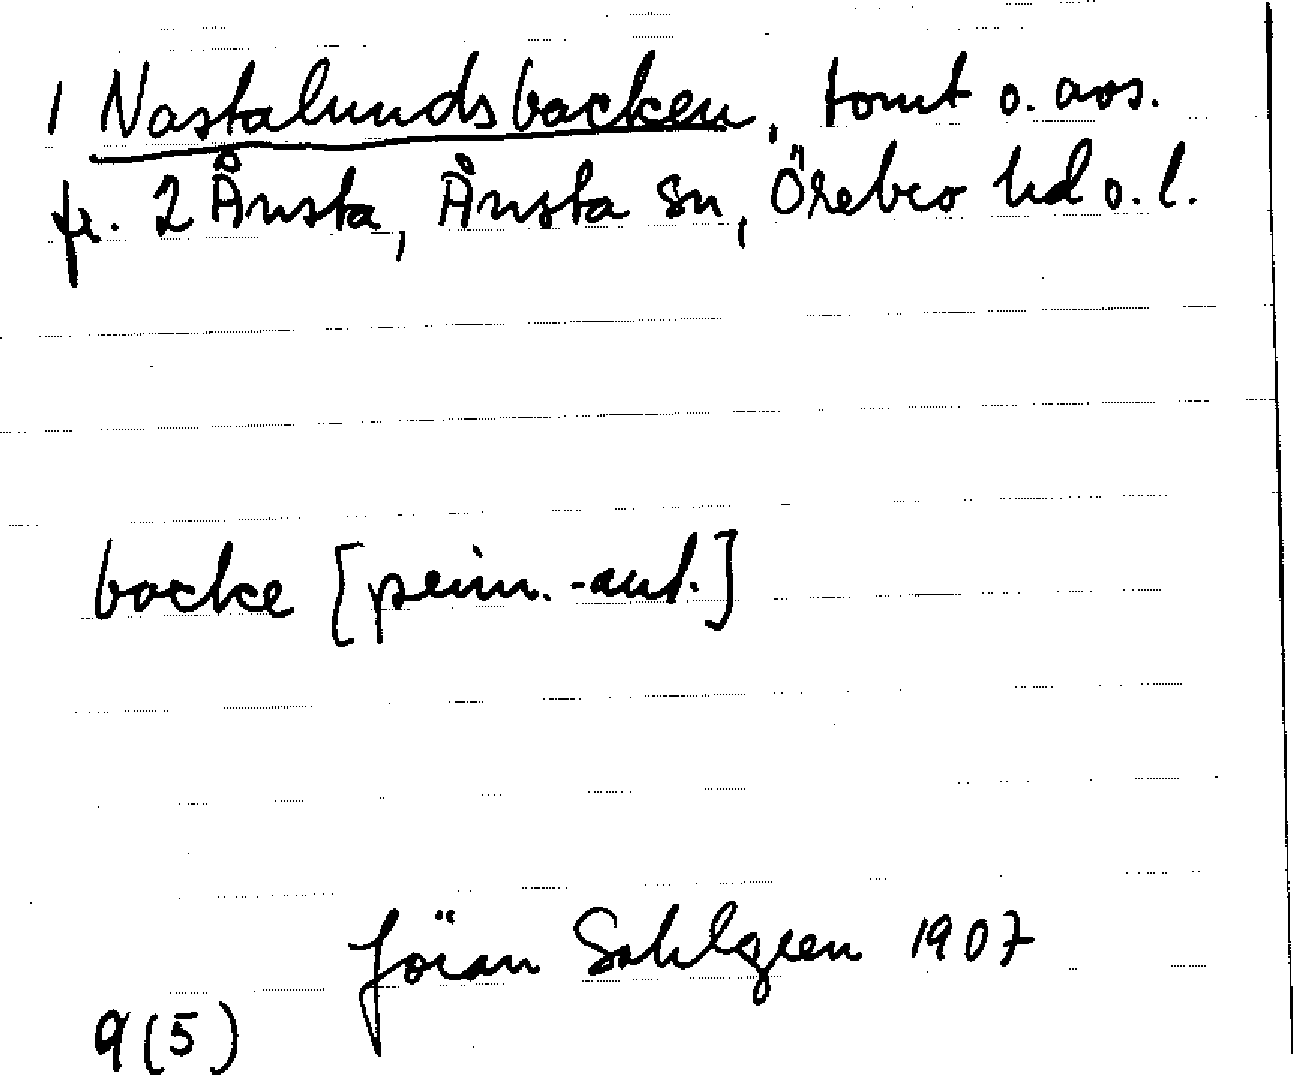 1 Nastalundsbacken, tomt o. avs.
fr. 2 Ånsta, Ånsta sn, Örebro hd o. l.
backe [prim.-ant.]
Jöran Sahlgren 1907
9(5)